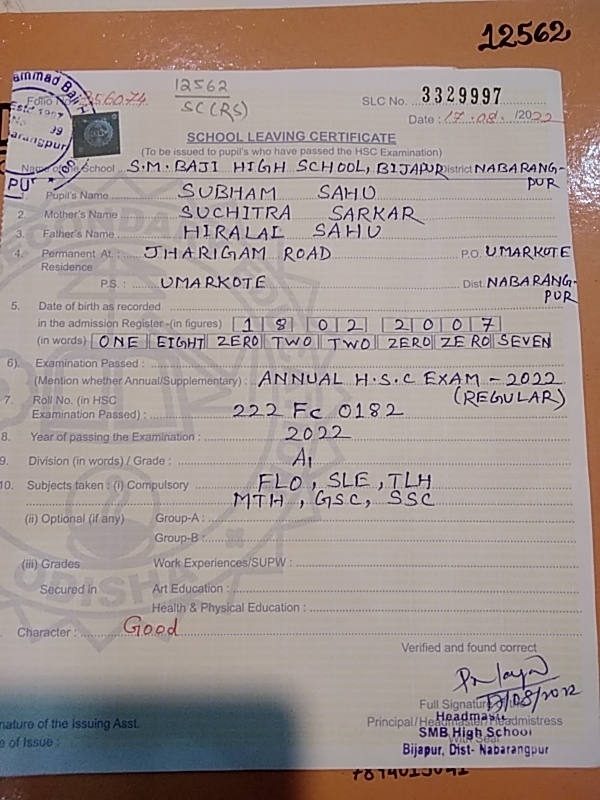 12562
Folio No. 356074
12562
SC (RS)
SLC No. 3329997
Date : 17.08. /2022
SCHOOL LEAVING CERTIFICATE
(To be issued to pupil's who have passed the HSC Examination)
Name of the School S.M. BAJI HIGH SCHOOL, BIJAPUR District NABARANG-
PUR
1. Pupil's Name SUBHAM SAHU
2. Mother's Name SUCHITRA SARKAR
3. Father's Name HIRALAL SAHU
4. Permanent At. : JHARIGAM ROAD P.O. UMARKOTE
Residence
P.S. : UMARKOTE Dist. NABARANG-
PUR
5. Date of birth as recorded
in the admission Register-(in figures) 1 8 0 2 2 0 0 7
(in words) ONE EIGHT ZERO TWO TWO ZERO ZERO SEVEN
6) Examination Passed :
(Mention whether Annual/Supplementary) : ANNUAL H.S.C EXAM - 2022
(REGULAR)
7. Roll No. (in HSC
Examination Passed) : 222 FC 0182
8. Year of passing the Examination : 2022
9. Division (in words) / Grade : A1
10. Subjects taken : (i) Compulsory FLO, SLE, TLH
MTH, GSC, SSC
(ii) Optional (if any) Group-A :
Group-B :
(iii) Grades Work Experiences/SUPW :
Secured in Art Education :
Health & Physical Education :
Character : Good
Verified and found correct
17/08/2022
Full Signature of the
Principal/Headmaster/Headmistress
Headmaster
With Seal
SMB High School
Bijapur, Dist- Nabarangpur
nature of the Issuing Asst.
e of Issue :
ODISHA